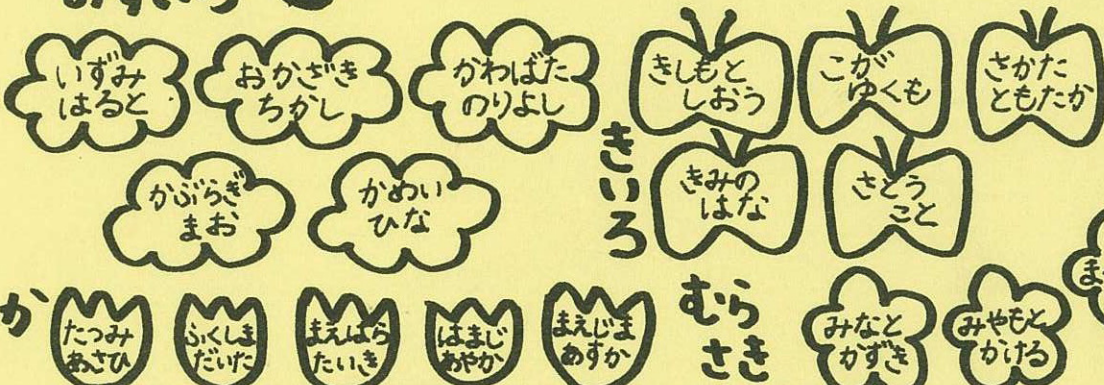 いずみ
はると
おかざき
ちかし
かわばた
のりよし
かぶらぎ
まお
かめい
ひな
きいろ
きしもと
しおう
こが
ゆくも
さかた
ともたか
きみの
はな
さとう
こと
か
たつみ
あさひ
ふくしま
だいた
まえはら
たいき
はまじ
あやか
まえじま
あすか
むら
さき
みなと
かずき
みやもと
かける
ま